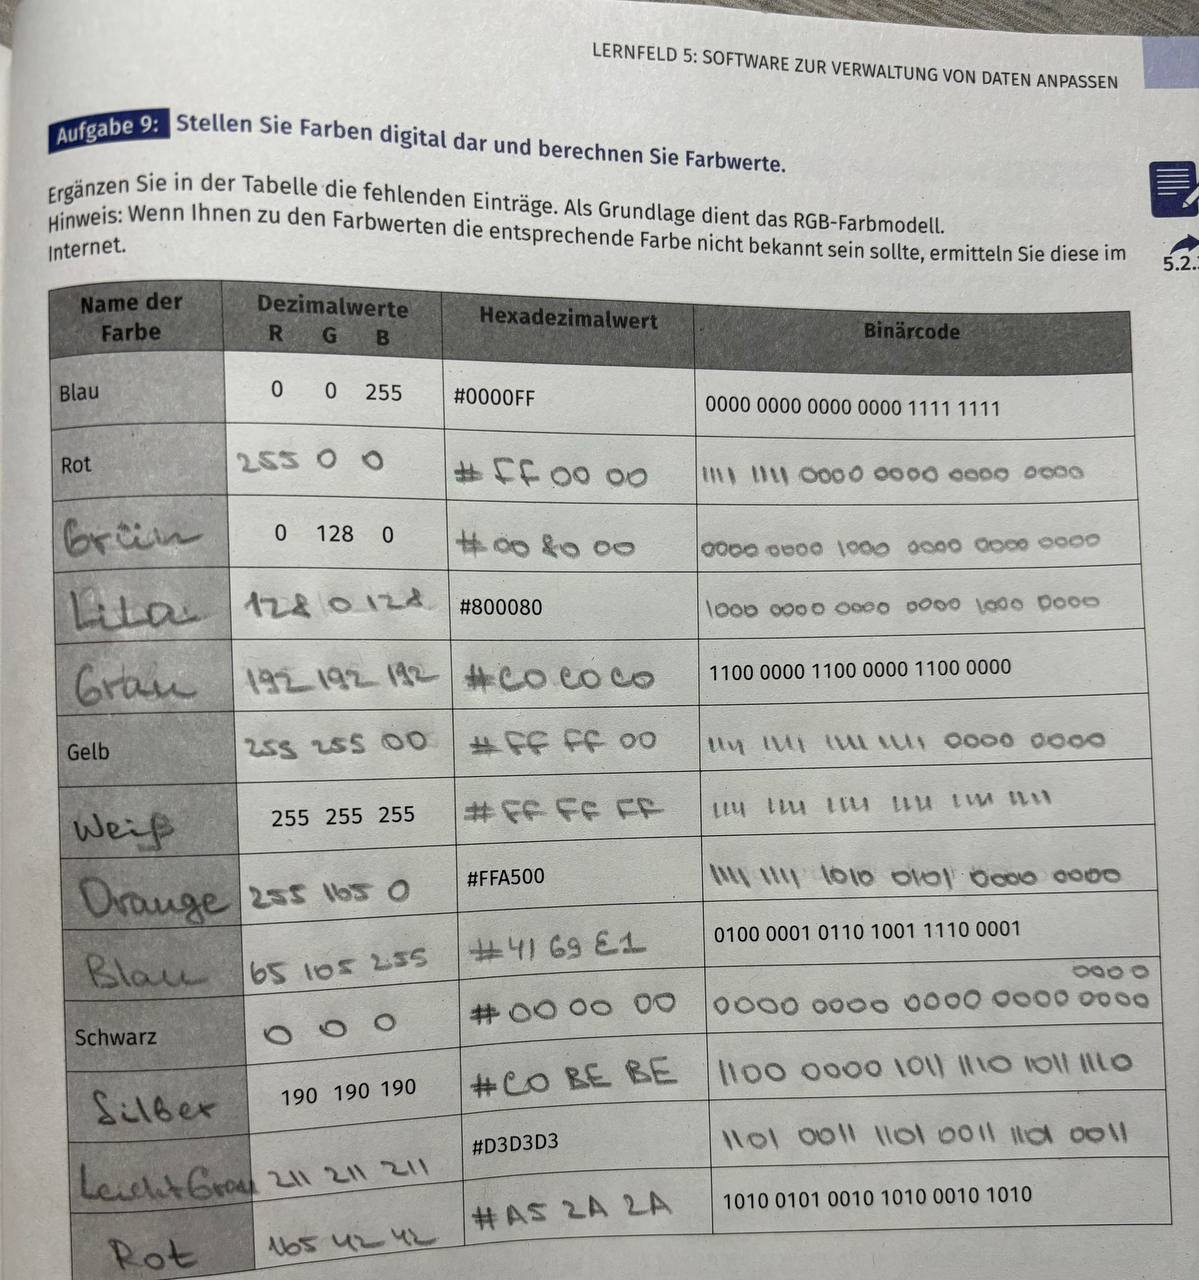 LERNFELD 5: SOFTWARE ZUR VERWALTUNG VON DATEN ANPASSEN
Aufgabe 9: Stellen Sie Farben digital dar und berechnen Sie Farbwerte.
Ergänzen Sie in der Tabelle die fehlenden Einträge. Als Grundlage dient das RGB-Farbmodell.
Hinweis: Wenn Ihnen zu den Farbwerten die entsprechende Farbe nicht bekannt sein sollte, ermitteln Sie diese im
Internet.
5.2.
Name der Farbe Dezimalwerte R G B Hexadezimalwert Binärcode
Blau 0 0 255 #0000FF 0000 0000 0000 0000 1111 1111
Rot 255 0 0 #FF 00 00 1111 1111 0000 0000 0000 0000
Grün 0 128 0 #00 80 00 0000 0000 1000 0000 0000 0000
Lila 128 0 128 #800080 1000 0000 0000 0000 1000 0000
Grau 192 192 192 #C0 C0 C0 1100 0000 1100 0000 1100 0000
Gelb 255 255 00 #FF FF 00 1111 1111 1111 1111 0000 0000
Weiß 255 255 255 #FF FF FF 1111 1111 1111 1111 1111 1111
Orange 255 165 0 #FFA500 1111 1111 1010 0101 0000 0000
Blau 65 105 255 #41 69 E1 0100 0001 0110 1001 1110 0001
Schwarz 0 0 0 #00 00 00 0000 0000 0000 0000 0000 0000
Silber 190 190 190 #C0 BE BE 1100 0000 1011 1110 1011 1110
LeichtGrau 211 211 211 #D3D3D3 1101 0011 1101 0011 1101 0011
Rot 165 42 42 #A5 2A 2A 1010 0101 0010 1010 0010 1010